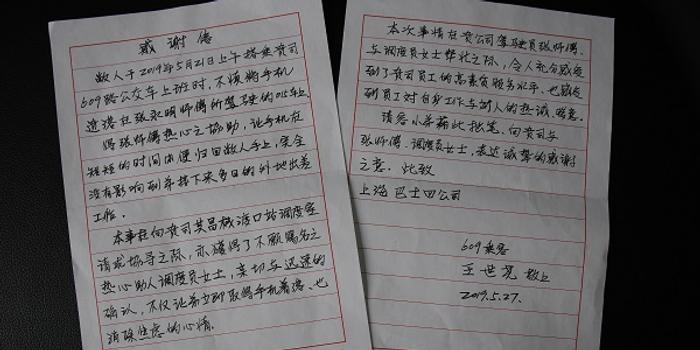 感谢信
敝人于2019年5月21日上午搭乘贵司
609路公交车上班时,不慎将手机
遗落在张永明师傅所驾驶的015车上
得张师傅热心之协助,让手机在
短短的时间内便归回敝人手上,完全
没有影响到弟接下来多日的外地出差
工作。
本事在向贵司共昌栈渡口站调度室
请求协寻之际,亦获得了不愿赐名之
热心助人调度员女士,亲切与迅速的
确认,不仅让弟立即取得手机着落,也
消除焦虑的心情。
本次事情在贵公司驾驶员张师傅
与调度员女士帮忙之际,令人充分感受
到了贵司员工的高素质服务水平,也感受
到员对自身工作与对人的热诚
请容小弟藉此拙笔,向贵司与
张师傅、调度员女士,表达诚挚的感谢
之意。此致
上海巴士四公司
609乘客
王世尧 敬上
2019.5.27.